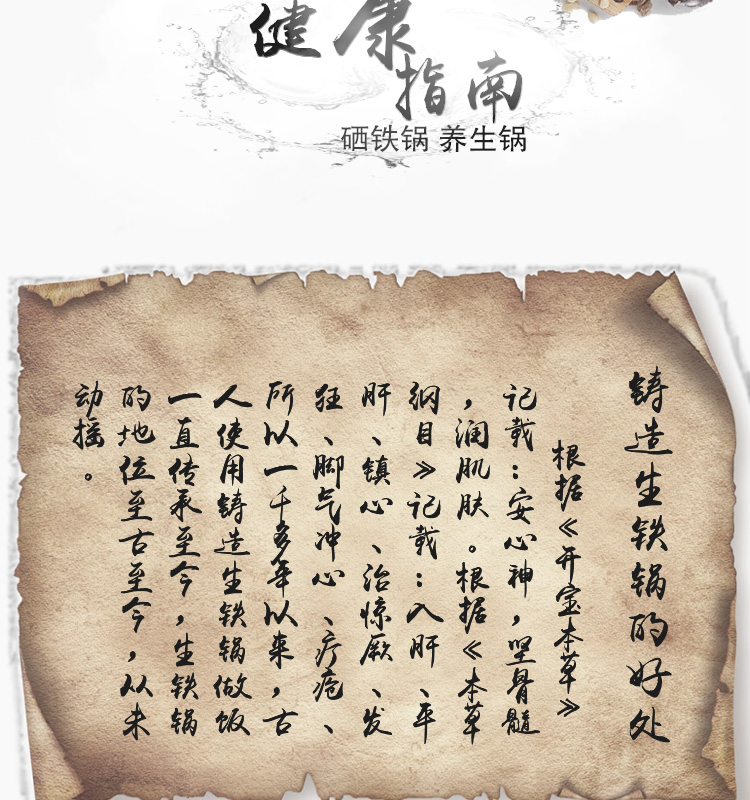 健康
指南
硒铁锅 养生锅
铸造生铁锅的好处
根据《开宝本草》
记载：安心神，坚骨髓
，润肌肤。根据《本草
纲目》记载：入肝、平
肝、镇心、治惊厥、发
狂、脚气冲心、疗疮、
所以一千多年以来，古
人使用铸造生铁锅做饭
一直传承至今，生铁锅
的地位至古至今，从未
动摇。